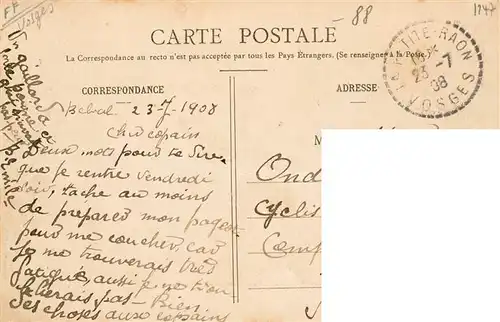 FF
Vosges
88
1247
CARTE POSTALE
La Correspondance au recto n'est pas acceptée par tous les Pays Étrangers. (Se renseigner à la Poste.)
CORRESPONDANCE
ADRESSE
LA PETITE-RAON
23 -7
08
VOSGES
23-7-1908
Cher copain
Deux mots pour te dire
que je rentre vendredi
soir, tache au moins
de préparer mon pageot
pour me coucher, car
je me trouverais très
fatigué, aussi je ne t'en
Bien
des choses aux copains
Un gaillard
M
Ond
Cyclis
Comp